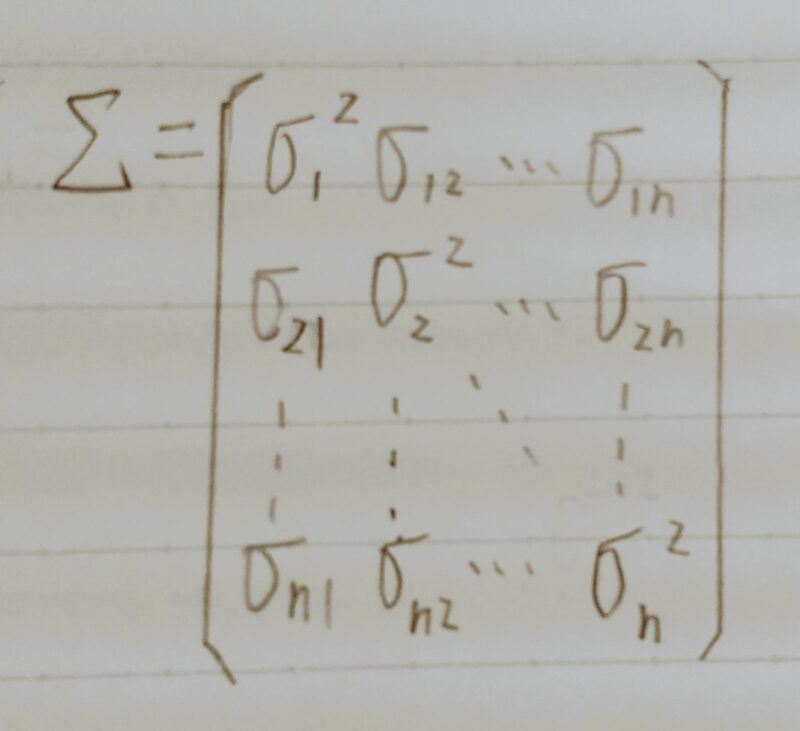 Σ = ( σ₁² σ₁₂ ⋯ σ₁ₙ
σ₂₁ σ₂² ⋯ σ₂ₙ
⋮ ⋮ ⋱ ⋮
σₙ₁ σₙ₂ ⋯ σₙ² )